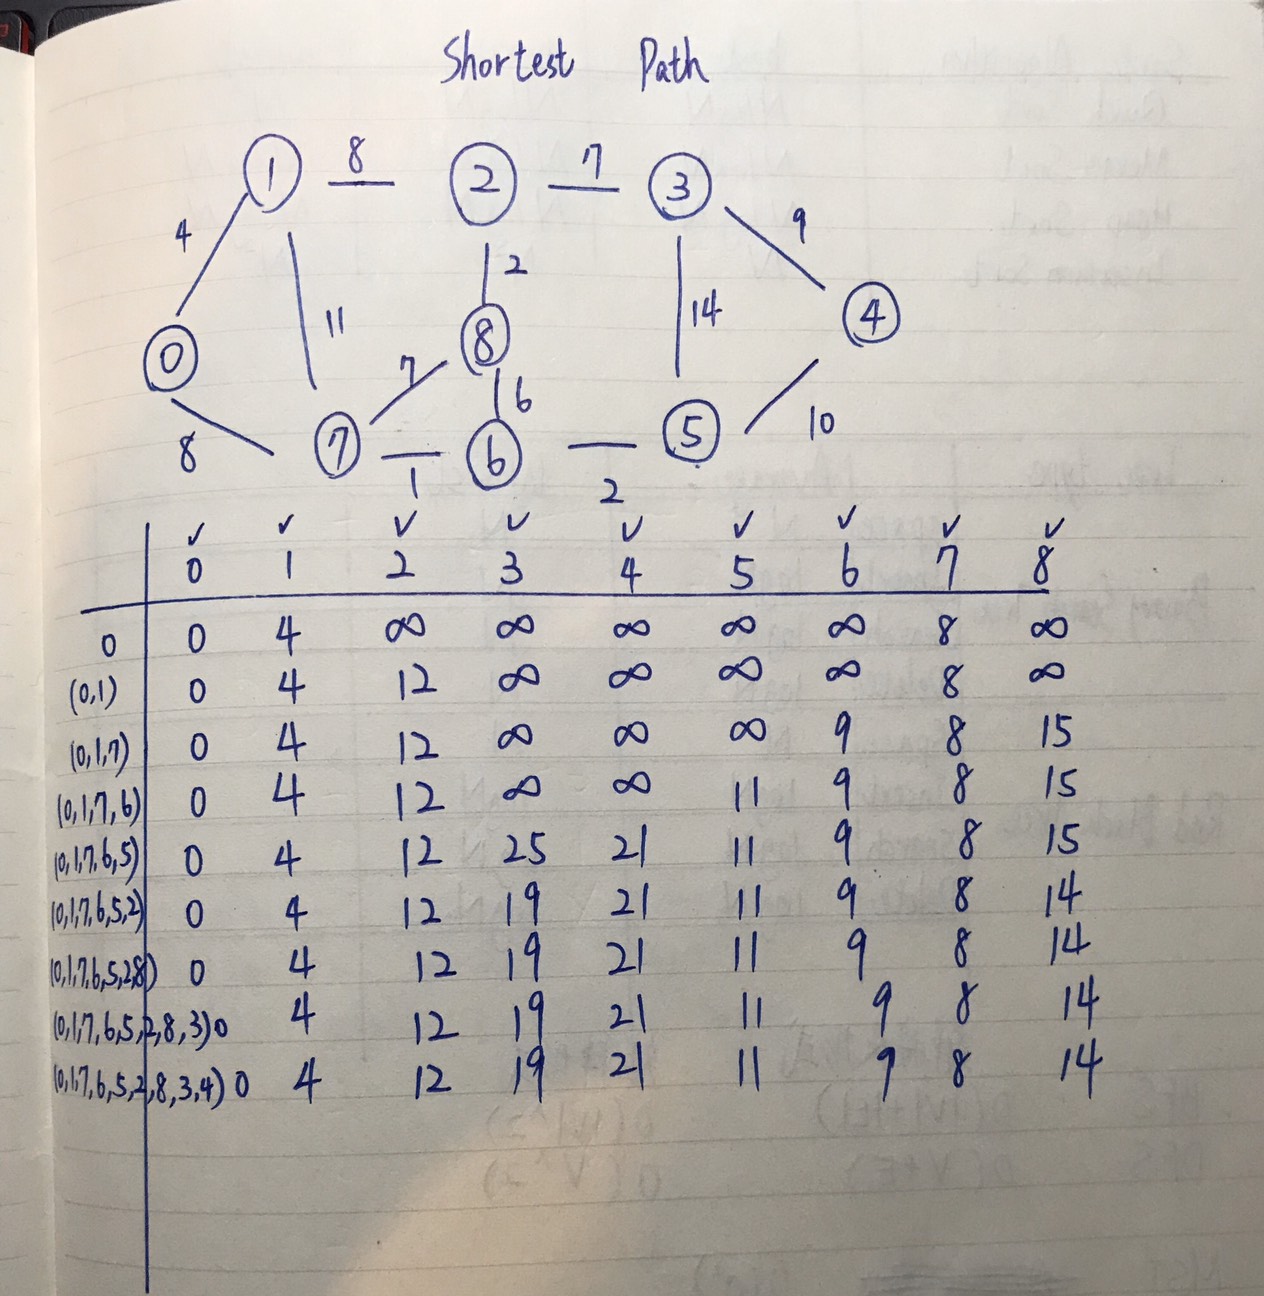 Shortest Path
1 8 2 7 3
4 9
2
11 14 4
0 8
7 6
8 7 1 6 2 5 10
✓ ✓ ✓ ✓ ✓ ✓ ✓ ✓ ✓
0 1 2 3 4 5 6 7 8
0 0 4 ∞ ∞ ∞ ∞ ∞ 8 ∞
(0,1) 0 4 12 ∞ ∞ ∞ ∞ 8 ∞
(0,1,7) 0 4 12 ∞ ∞ ∞ 9 8 15
(0,1,7,6) 0 4 12 ∞ ∞ 11 9 8 15
(0,1,7,6,5) 0 4 12 25 21 11 9 8 15
(0,1,7,6,5,2) 0 4 12 19 21 11 9 8 14
(0,1,7,6,5,2,8) 0 4 12 19 21 11 9 8 14
(0,1,7,6,5,2,8,3) 0 4 12 19 21 11 9 8 14
(0,1,7,6,5,2,8,3,4) 0 4 12 19 21 11 9 8 14